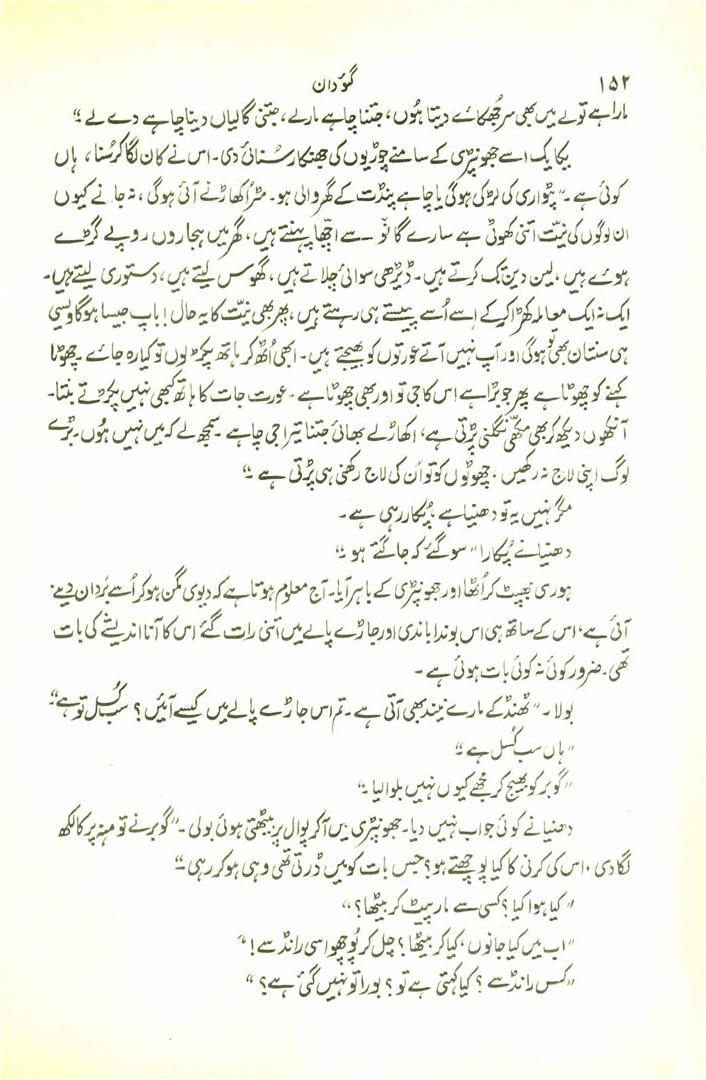 ۱۵۲
گئودان
مارا ہے تو لے میں بھی سر جُھکائے دیتا ہُوں، جتنا چاہے مارلے، جتنی گالیاں دینا چاہے دے لے ؛“
یکایک اسے جھونپڑی کے سامنے چوڑیوں کی جھنکار سنائی دی۔ اس نے کان لگا کر سُنا، ہاں
کوئی ہے۔“ پٹواری کی لڑکی ہوگی یا چاہے پنڈت کے گھر والی ہو۔ مٹر اُکھاڑنے آئی ہوگی، نہ جانے کیوں
ان لوگوں کی نیّت اتنی کھوٹی ہے سارے گانو سے اچّھا پہنتے ہیں، گھر میں ہجاروں روپے گڑے
ہوئے ہیں، لین دین تک کرتے ہیں۔ ڈیڑھی سوائی چلاتے ہیں، گھوس لیتے ہیں، دستوری لیتے ہیں۔
ایک نہ ایک معاملہ کھڑا کرکے اسے اُسے پیستے ہی رہتے ہیں، پھر بھی نیّت کا یہ حال! باپ جیسا ہوگا ویسی
ہی سنتان بھی تو ہوگی اور آپ نہیں آتے عورتوں کو بھیجتے ہیں۔ ابھی اُٹھ کر ہاتھ پکڑ لوں تو کیا رہ جائے۔ چھوٹا
کہنے کو چھوٹا ہے پھر جو بڑا ہے اس کا جی تو اور بھی چھوٹا ہے۔ عورت جات کا ہاتھ کبھی نہیں پکڑتے بنتا۔
آنکھوں دیکھ کر بھی مکھّی نگلنی پڑتی ہے، اکھاڑ لے بھائی جتنا تیرا جی چاہے۔ سمجھ لے کہ میں نہیں ہُوں۔ بڑے
لوگ اپنی لاج نہ رکھیں، چھوٹوں کو تو اُن کی لاج رکھنی ہی پڑتی ہے ؛“
مگر نہیں یہ تو دھنیا ہے، پُکار رہی ہے۔
دھنیا نے پُکارا ”سوگئے کہ جاگتے ہو ؛“
ہوری جھپٹ کر اُٹھا اور جھونپڑی کے باہر آیا۔ آج معلوم ہوتا ہے کہ دیوی مگن ہو کر اُسے بردان دینے
آئی ہے، اس کے ساتھ ہی اس بوندا باندی اور جاڑے پالے میں اتنی رات گئے اس کا آنا اندیشے کی بات
تھی۔ ضرور کوئی نہ کوئی بات ہوئی ہے۔
بولا۔ ”ٹھنڈ کے مارے نیند بھی آتی ہے۔ تم اس جاڑے پالے میں کیسے آئیں؟ سب کُسل تو ہے؛“
”ہاں سب کُسل ہے ؛“
”گوبر کو بھیج کر مجھے کیوں نہیں بلوا لیا ؛“
دھنیا نے کوئی جواب نہیں دیا۔ جھونپڑی میں آ کر پوال پر بیٹھتی ہوئی بولی۔ ”گوبر نے تو منہ پر کالکھ
لگا دی، اس کی کرنی کا کیا پوچھتے ہو؟ جس بات کو میں ڈرتی تھی وہی ہو کر رہی ؛“
”کیا ہوا کیا؟ کسی سے مار پیٹ کر بیٹھا؟“
”اب میں کیا جانوں، کیا کر بیٹھا؟ چل کر پُوچھو اسی رانڈ سے!“
”کس رانڈ سے؟ کیا کہتی ہے تو؟ بورا تو نہیں گئی ہے؟“